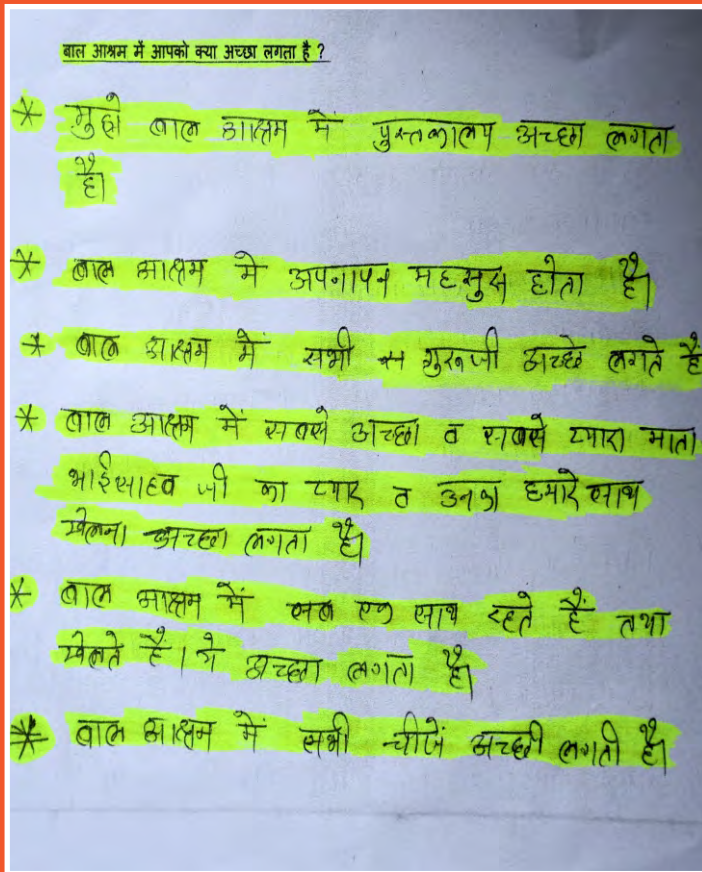 बाल आश्रम में आपको क्या अच्छा लगता है ?
* मुझे बाल आश्रम में पुस्तकालय अच्छा लगता
है।
* बाल आश्रम मे अपनापन महसुस होता है।
* बाल आश्रम में सभी गुरूजी अच्छे लगते है
* बाल आश्रम में सबसे अच्छा व सबसे प्यारा माता
भाईसाहब जी का प्यार व उनका हमारे साथ
खेलना अच्छा लगता है।
* बाल आश्रम में सब एक साथ रहते हैं तथा
खेलते है। ये अच्छा लगता है।
* बाल आश्रम में सभी चीजें अच्छी लगती है।